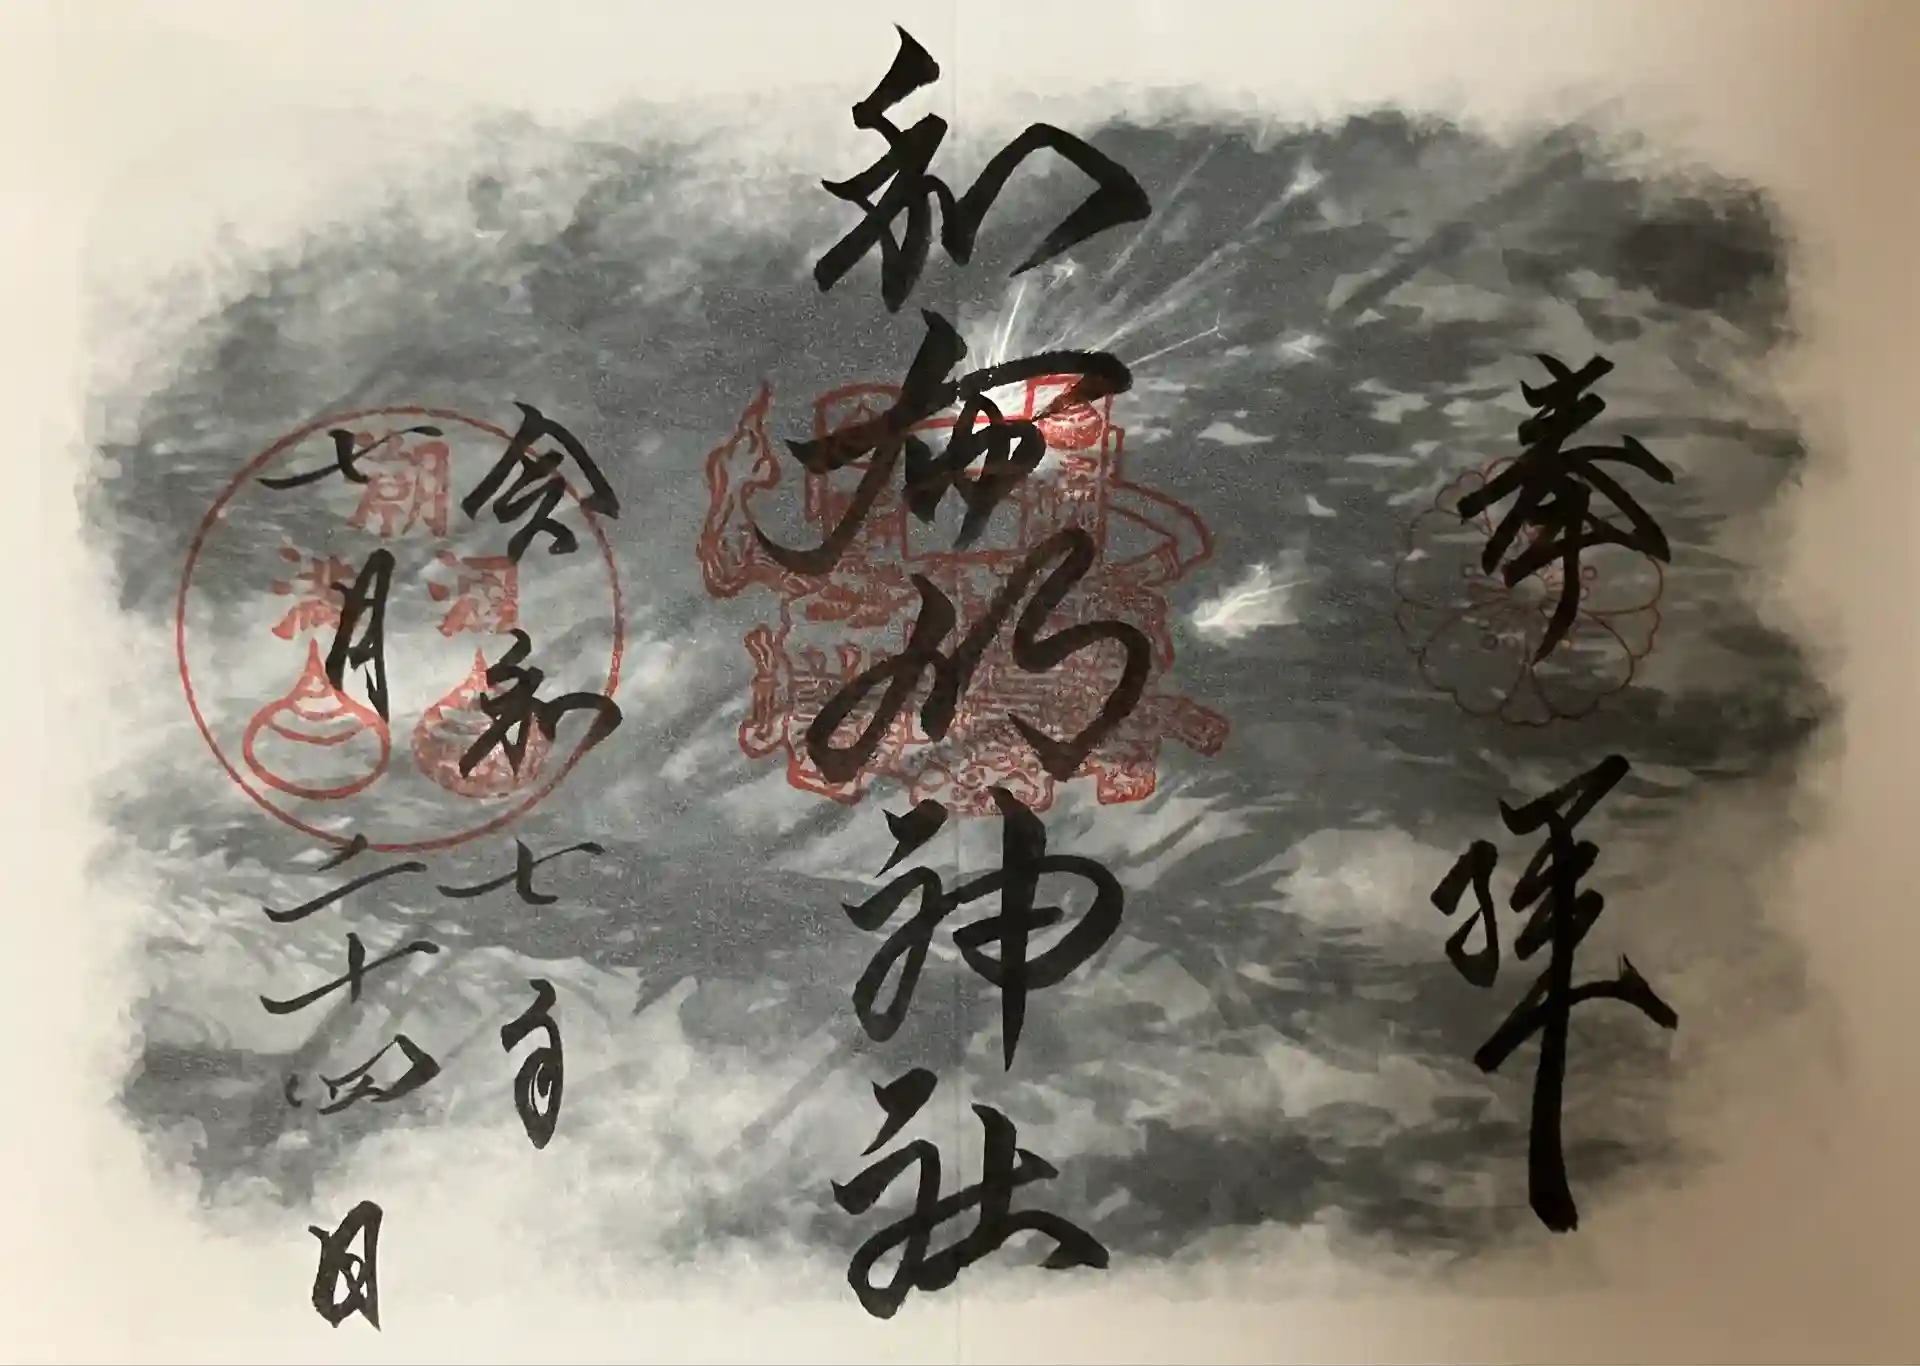 奉拝
和布刈神社
令和七年
七月二十四日
潮
涸
満